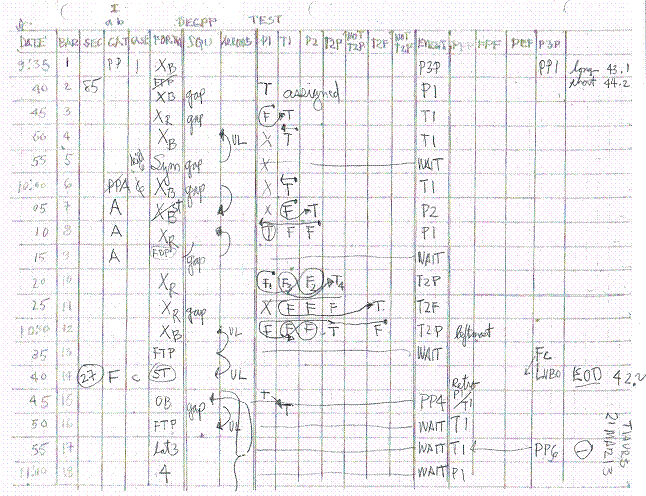 I
a b DEGPP TEST
DATE BAR SEC CAT CASE FORM SQU P1 T1 P2 T2P NOT T2P T2F NOT T2P EVENT PPF DEF P3P
9:35 1 PP 1 XB P3P PP1 long 43.1
short 44.2
40 2 85 FTP XB gap T assigned P1
45 3 XR gap F T T1
4 XB UL X T T1
55 5 Sym gap X WAIT
10:00 6 PPA 6 XB gap X T T1
05 7 A X F T P2
10 8 A XR T F F P1
15 9 A gap WAIT
20 10 XR F1 F2 F2 T4 T2P
25 11 XR gap X F F T T2F
10:30 12 XB UL F F F T F T2P leftmost
35 13 FTP WAIT
40 14 27 F C ST UL EOD 42.2
Retro
45 15 OB gap T T PP4 P1
T1
50 16 FTP UL WAIT T1
55 17 Lat3 WAIT T1 PP6
11:00 18 4 WAIT P1
THURS
21 MAR 13